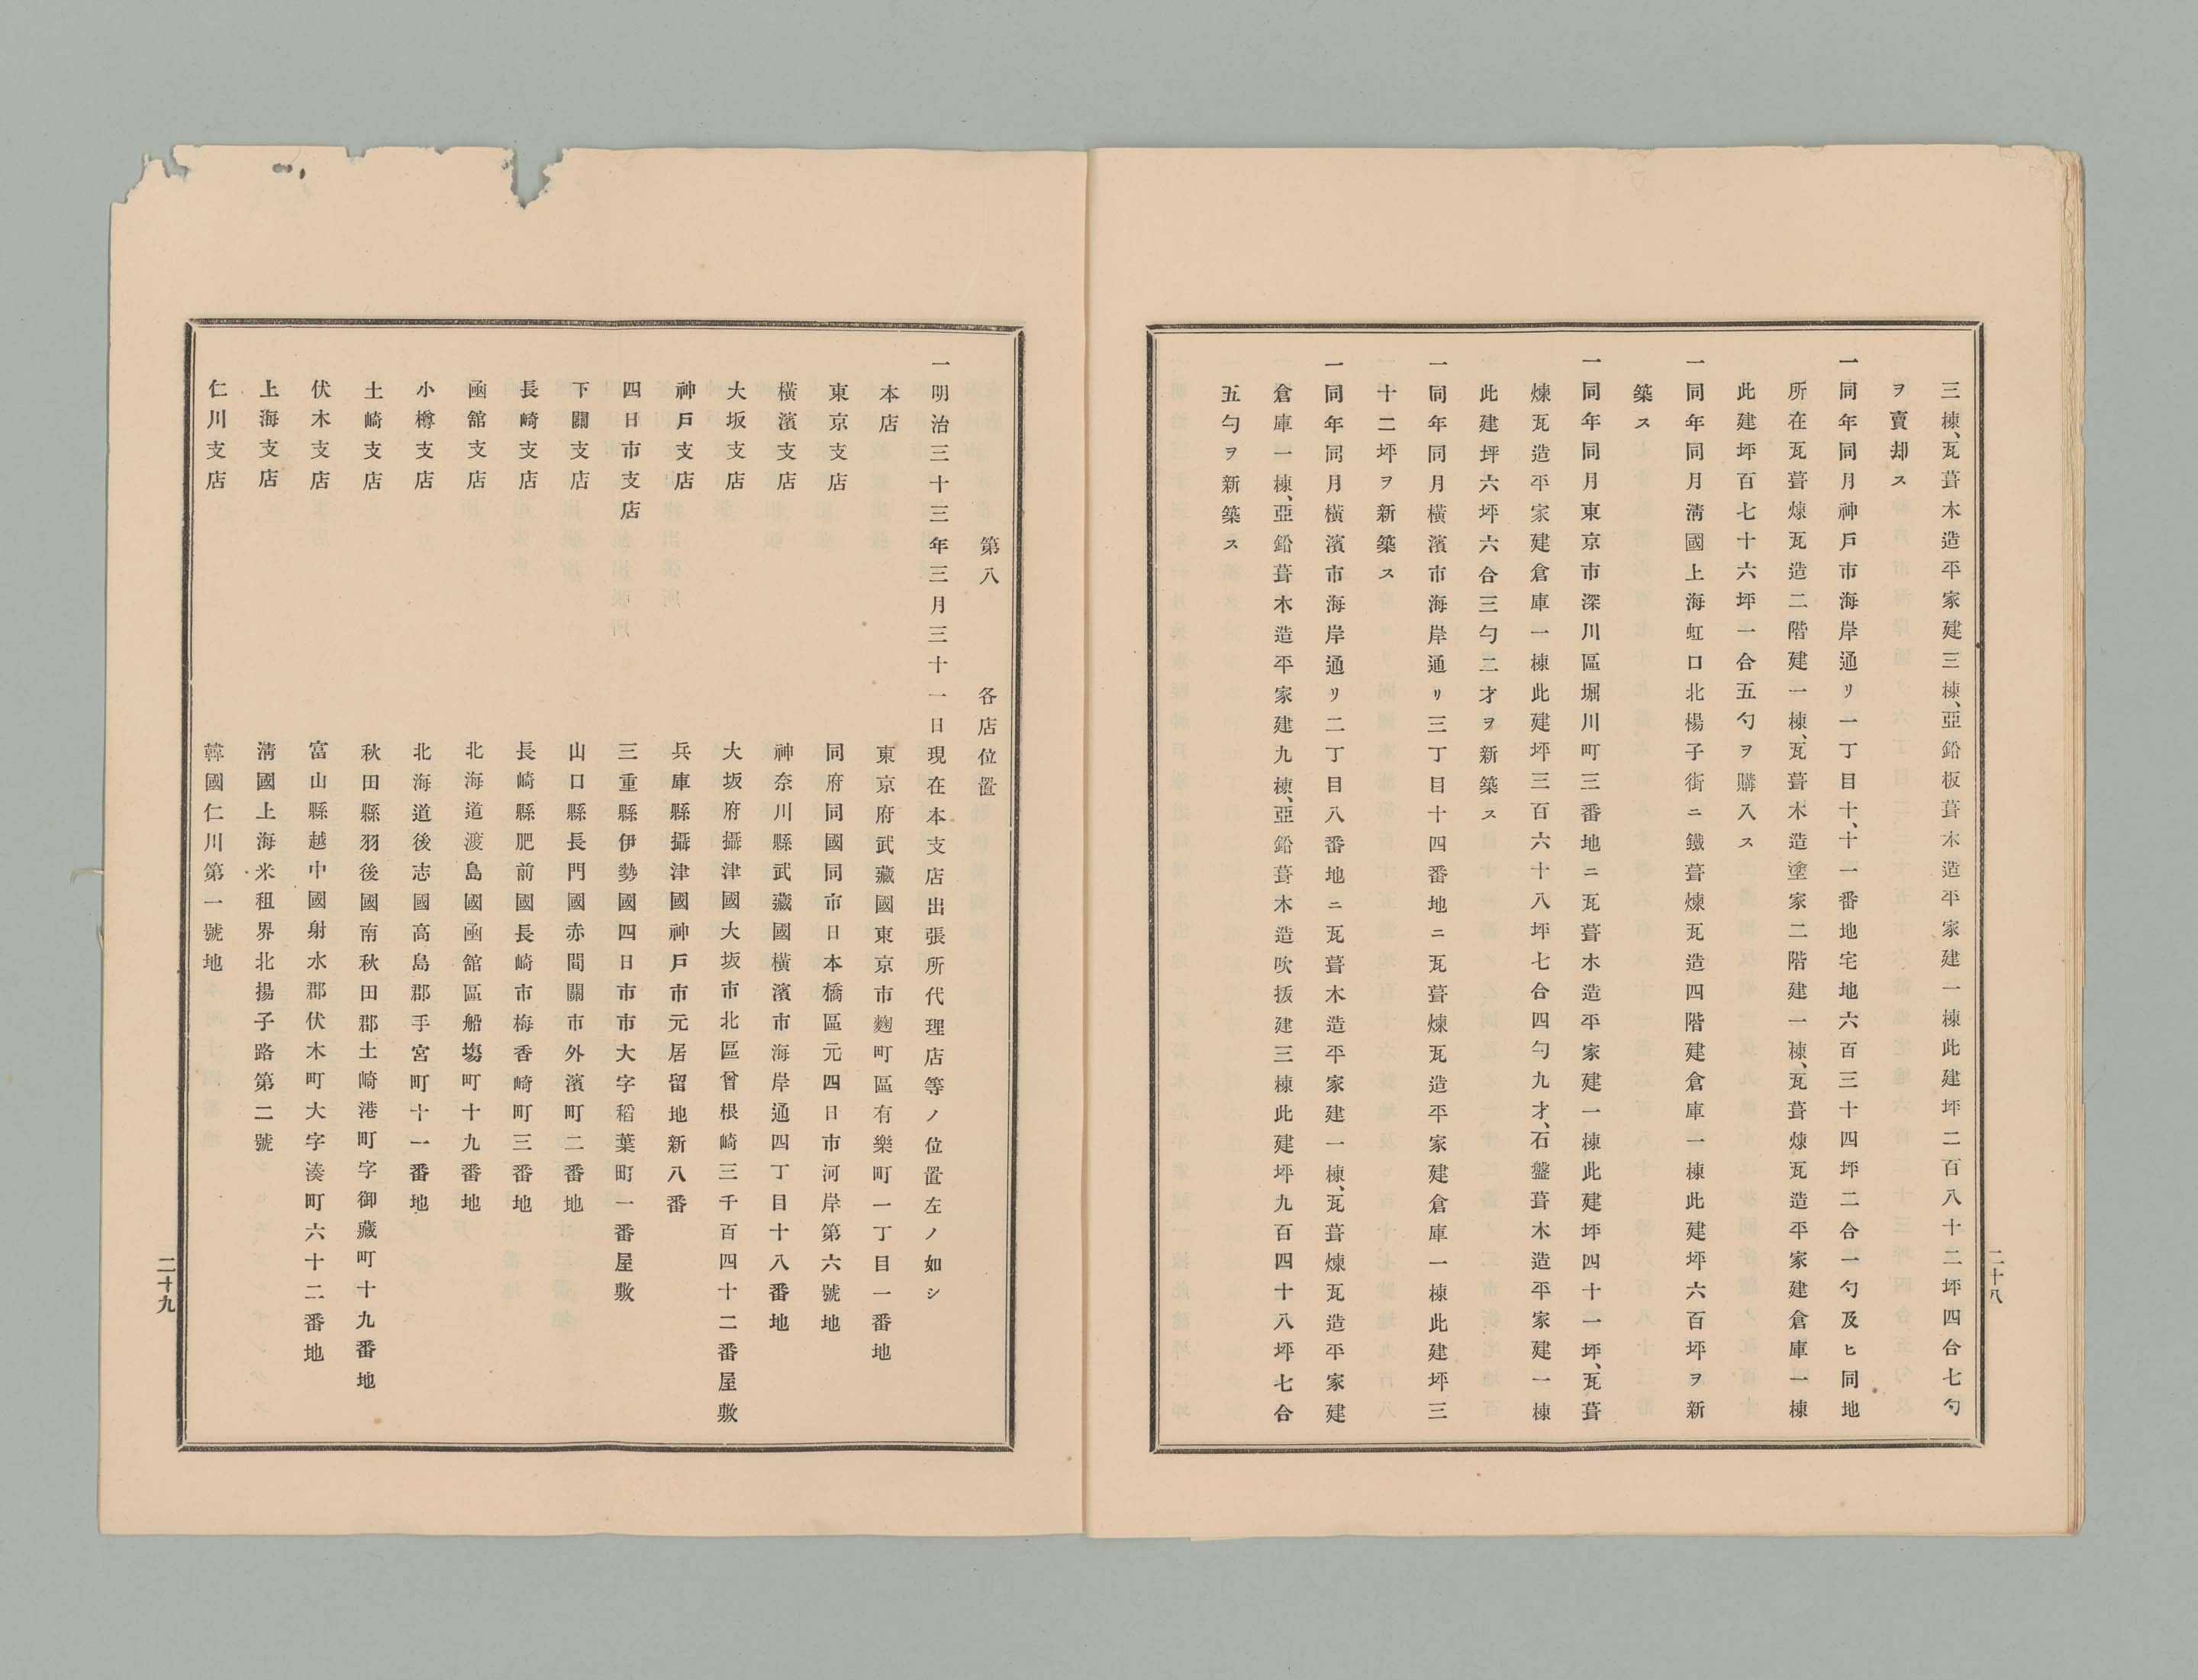 三棟、瓦葺木造平家建三棟、亞鉛板葺木造平家建一棟此建坪二百八十二坪四合七勺
ヲ賣却ス
一同年同月神戶市海岸通リ一丁目十、十一番地宅地六百三十四坪二合一勺及ヒ同地
所在瓦葺煉瓦造二階建一棟、瓦葺木造塗家二階建一棟、瓦葺煉瓦造平家建倉庫一棟
此建坪百七十六坪一合五勺ヲ購入ス
一同年同月淸國上海虹口北楊子街ニ鐵葺煉瓦造四階建倉庫一棟此建坪六百坪ヲ新
築ス
一同年同月東京市深川區堀川町三番地ニ瓦葺木造平家建一棟此建坪四十一坪、瓦葺
煉瓦造平家建倉庫一棟此建坪三百六十八坪七合四勺九才、石盤葺木造平家建一棟
此建坪六坪六合三勺二才ヲ新築ス
一同年同月橫濱市海岸通リ三丁目十四番地ニ瓦葺煉瓦造平家建倉庫一棟此建坪三
十二坪ヲ新築ス
一同年同月橫濱市海岸通リ二丁目八番地ニ瓦葺木造平家建一棟、瓦葺煉瓦造平家建
倉庫一棟、亞鉛葺木造平家建九棟、亞鉛葺木造吹拔建三棟此建坪九百四十八坪七合
五勺ヲ新築ス
二十八
第八　各店位置
一明治三十三年三月三十一日現在本支店出張所代理店等ノ位置左ノ如シ
本店　東京府武藏國東京市麴町區有樂町一丁目一番地
東京支店　同府同國同市日本橋區元四日市河岸第六號地
橫濱支店　神奈川縣武藏國橫濱市海岸通四丁目十八番地
大坂支店　大坂府攝津國大坂市北區曾根崎三千百四十二番屋敷
神戶支店　兵庫縣攝津國神戶市元居留地新八番
四日市支店　三重縣伊勢國四日市市大字稻葉町一番屋敷
下關支店　山口縣長門國赤間關市外濱町二番地
長崎支店　長崎縣肥前國長崎市梅香崎町三番地
函舘支店　北海道渡島國函舘區船塲町十九番地
小樽支店　北海道後志國高島郡手宮町十一番地
土崎支店　秋田縣羽後國南秋田郡土崎港町字御藏町十九番地
伏木支店　富山縣越中國射水郡伏木町大字湊町六十二番地
上海支店　淸國上海米租界北揚子路第二號
仁川支店　韓國仁川第一號地
二十九